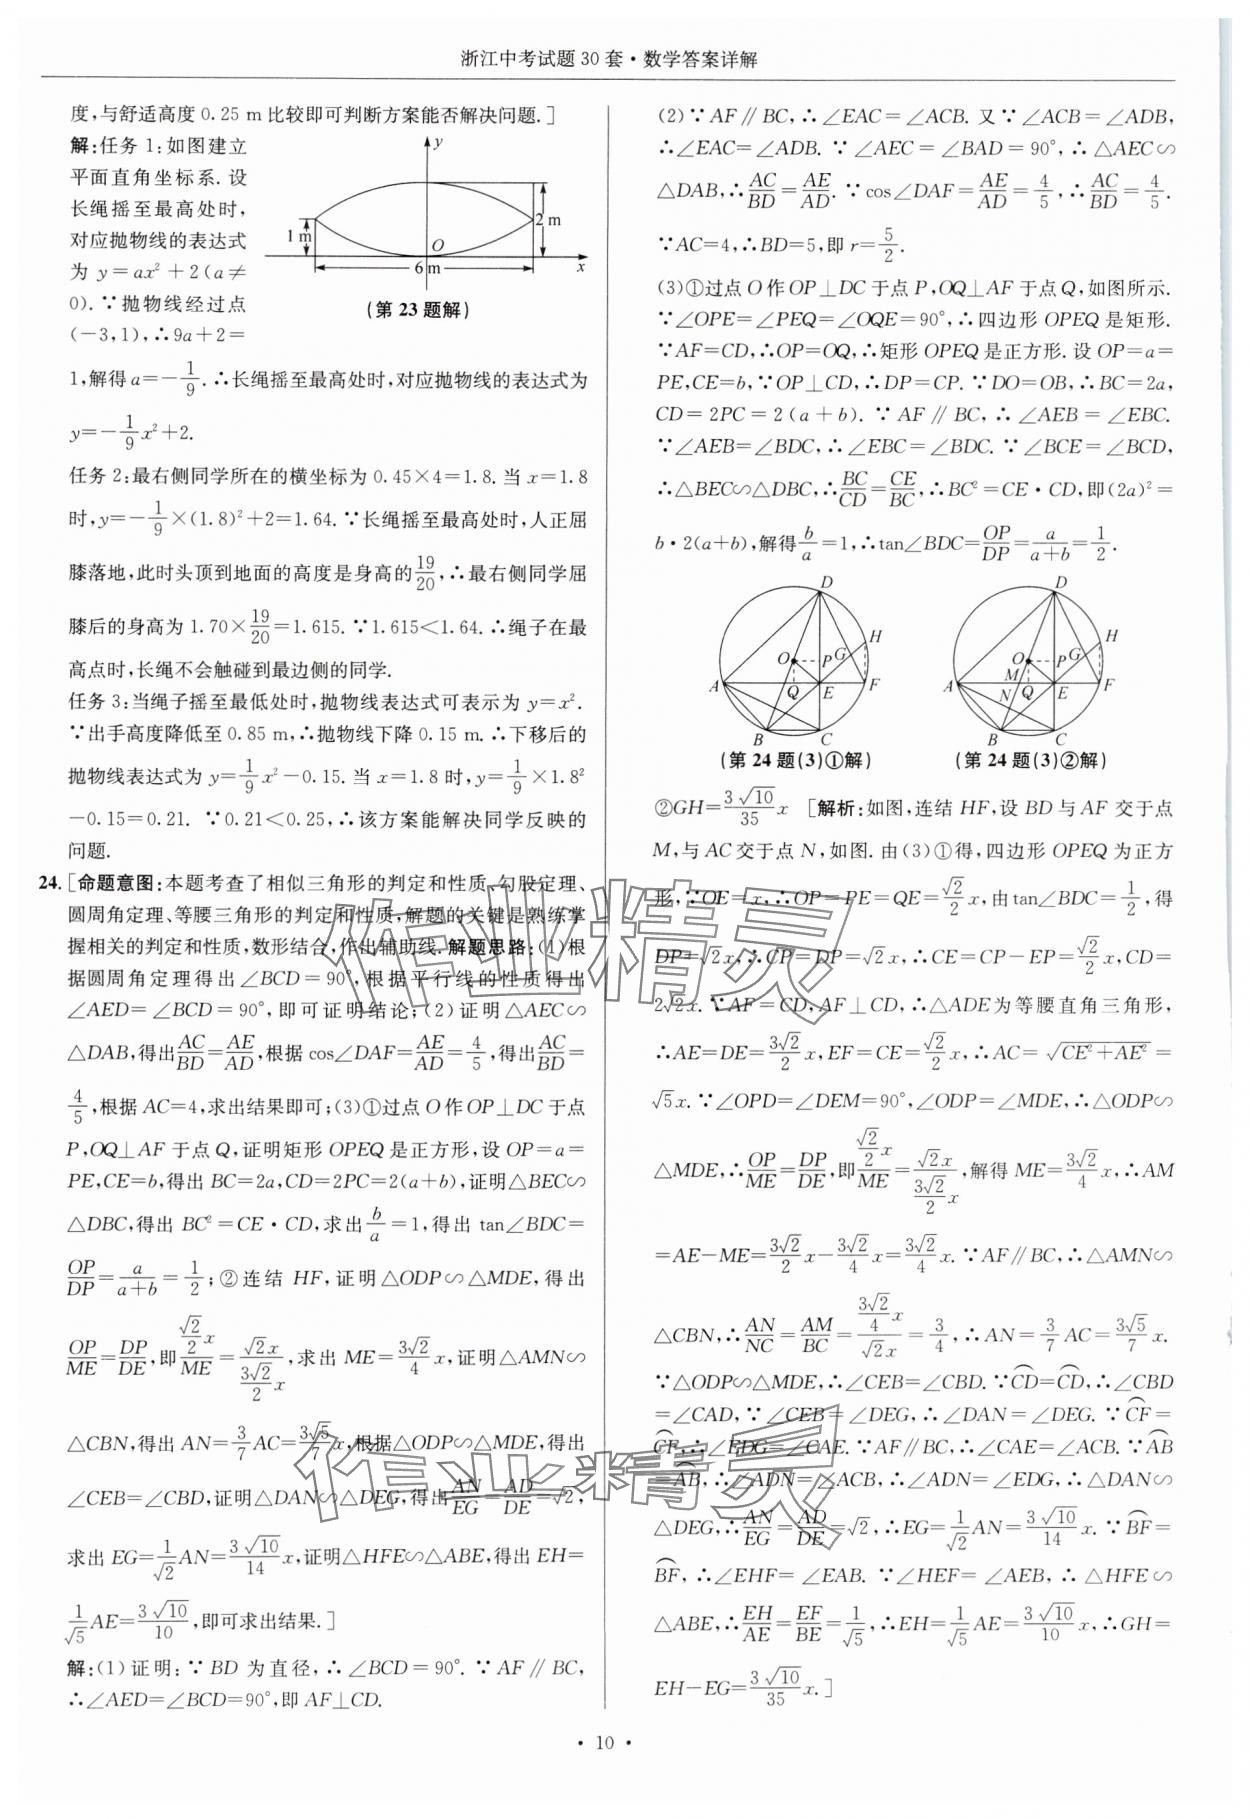 浙江中考试题30套·数学答案详解
度,与舒适高度0.25 m比较即可判断方案能否解决问题.]
解:任务1:如图建立
平面直角坐标系.设
长绳摇至最高处时,
对应抛物线的表达式
为y=ax²+2(a≠
0).∵抛物线经过点
(-3,1),∴9a+2=
y
2 m
1 m
O
6 m
x
(第23题解)
1,解得a=-1/9.∴长绳摇至最高处时,对应抛物线的表达式为
y=-1/9x²+2.
任务2:最右侧同学所在的横坐标为0.45×4=1.8.当x=1.8
时,y=-1/9×(1.8)²+2=1.64.∵长绳摇至最高处时,人正屈
膝落地,此时头顶到地面的高度是身高的19/20,∴最右侧同学屈
膝后的身高为1.70×19/20=1.615.∵1.615<1.64.∴绳子在最
高点时,长绳不会触碰到最边侧的同学.
任务3:当绳子摇至最低处时,抛物线表达式可表示为y=x².
∵出手高度降低至0.85 m,∴抛物线下降0.15 m.∴下移后的
抛物线表达式为y=1/9x²-0.15.当x=1.8时,y=1/9×1.8²
-0.15=0.21.∵0.21<0.25,∴该方案能解决同学反映的
问题.
24.[命题意图:本题考查了相似三角形的判定和性质,勾股定理、
圆周角定理、等腰三角形的判定和性质,解题的关键是熟练掌
握相关的判定和性质,数形结合,作出辅助线.解题思路:(1)根
据圆周角定理得出∠BCD=90°,根据平行线的性质得出
∠AED=∠BCD=90°,即可证明结论;(2)证明△AEC∽
△DAB,得出AC/BD=AE/AD,根据cos∠DAF=AE/AD=4/5,得出AC/BD=
4/5,根据AC=4,求出结果即可;(3)①过点O作OP⊥DC于点
P,OQ⊥AF于点Q,证明矩形OPEQ是正方形,设OP=a=
PE,CE=b,得出BC=2a,CD=2PC=2(a+b),证明△BEC∽
△DBC,得出BC²=CE·CD,求出b/a=1,得出tan∠BDC=
OP/DP=a/(a+b)=1/2;②连结HF,证明△ODP∽△MDE,得出
OP/ME=DP/DE,即(√2/2 x)/ME=√2x/(3√2/2 x),求出ME=3√2/4 x,证明△AMN∽
△CBN,得出AN=3/7AC=3√5/7 x,根据△ODP∽△MDE,得出
∠CEB=∠CBD,证明△DAN∽△DEG,得出AN/EG=AD/DE=√2,
求出EG=1/√2 AN=3√10/14 x,证明△HFE∽△ABE,得出EH=
1/√5 AE=3√10/10,即可求出结果.]
解:(1)证明:∵BD为直径,∴∠BCD=90°.∵AF∥BC,
∴∠AED=∠BCD=90°,即AF⊥CD.
(2)∵AF∥BC,∴∠EAC=∠ACB.又∵∠ACB=∠ADB,
∴∠EAC=∠ADB.∵∠AEC=∠BAD=90°,∴△AEC∽
△DAB,∴AC/BD=AE/AD.∵cos∠DAF=AE/AD=4/5,∴AC/BD=4/5.
∵AC=4,∴BD=5,即r=5/2.
(3)①过点O作OP⊥DC于点P,OQ⊥AF于点Q,如图所示.
∵∠OPE=∠PEQ=∠OQE=90°,∴四边形OPEQ是矩形.
∵AF=CD,∴OP=OQ,∴矩形OPEQ是正方形.设OP=a=
PE,CE=b,∵OP⊥CD,∴DP=CP.∵DO=OB,∴BC=2a,
CD=2PC=2(a+b).∵AF∥BC,∴∠AEB=∠EBC.
∵∠AEB=∠BDC,∴∠EBC=∠BDC.∵∠BCE=∠BCD,
∴△BEC∽△DBC,∴BC/CD=CE/BC,∴BC²=CE·CD,即(2a)²=
b·2(a+b),解得b/a=1,∴tan∠BDC=OP/DP=a/(a+b)=1/2.
D
H
O
P
G
A
Q
E
F
B
C
(第24题(3)①解)
D
H
O
P
G
M
A
N
Q
E
F
B
C
(第24题(3)②解)
②GH=3√10/35 x [解析:如图,连结HF,设BD与AF交于点
M,与AC交于点N,如图.由(3)①得,四边形OPEQ为正方
形,∵OE=x,∴OP=PE=QE=√2/2 x,由tan∠BDC=1/2,得
DP=√2x,∴CP=DP=√2x,∴CE=CP-EP=√2/2 x,CD=
2√2x.∵AF=CD,AF⊥CD,∴△ADE为等腰直角三角形,
∴AE=DE=3√2/2 x,EF=CE=√2/2 x,∴AC=√(CE²+AE²)=
√5x.∵∠OPD=∠DEM=90°,∠ODP=∠MDE,∴△ODP∽
△MDE,∴OP/ME=DP/DE,即(√2/2 x)/ME=√2x/(3√2/2 x),解得ME=3√2/4 x,∴AM
=AE-ME=3√2/2 x-3√2/4 x=3√2/4 x.∵AF∥BC,∴△AMN∽
△CBN,∴AN/NC=AM/BC=(3√2/4 x)/(√2x)=3/4,∴AN=3/7 AC=3√5/7 x.
∵△ODP∽△MDE,∴∠CEB=∠CBD.∵⌒CD=⌒CD,∴∠CBD
=∠CAD,∵∠CEB=∠DEG,∴∠DAN=∠DEG.∵⌒CF=
⌒CF,∴∠EDG=∠CAE.∵AF∥BC,∴∠CAE=∠ACB.∵⌒AB
=⌒AB,∴∠ADN=∠ACB,∴∠ADN=∠EDG,∴△DAN∽
△DEG,∴AN/EG=AD/DE=√2,∴EG=1/√2 AN=3√10/14 x.∵⌒BF=
⌒BF,∴∠EHF=∠EAB.∵∠HEF=∠AEB,∴△HFE∽
△ABE,∴EH/AE=EF/BE=1/√5,∴EH=1/√5 AE=3√10/10 x,∴GH=
EH-EG=3√10/35 x.]
作业精灵
作业精灵
·10·